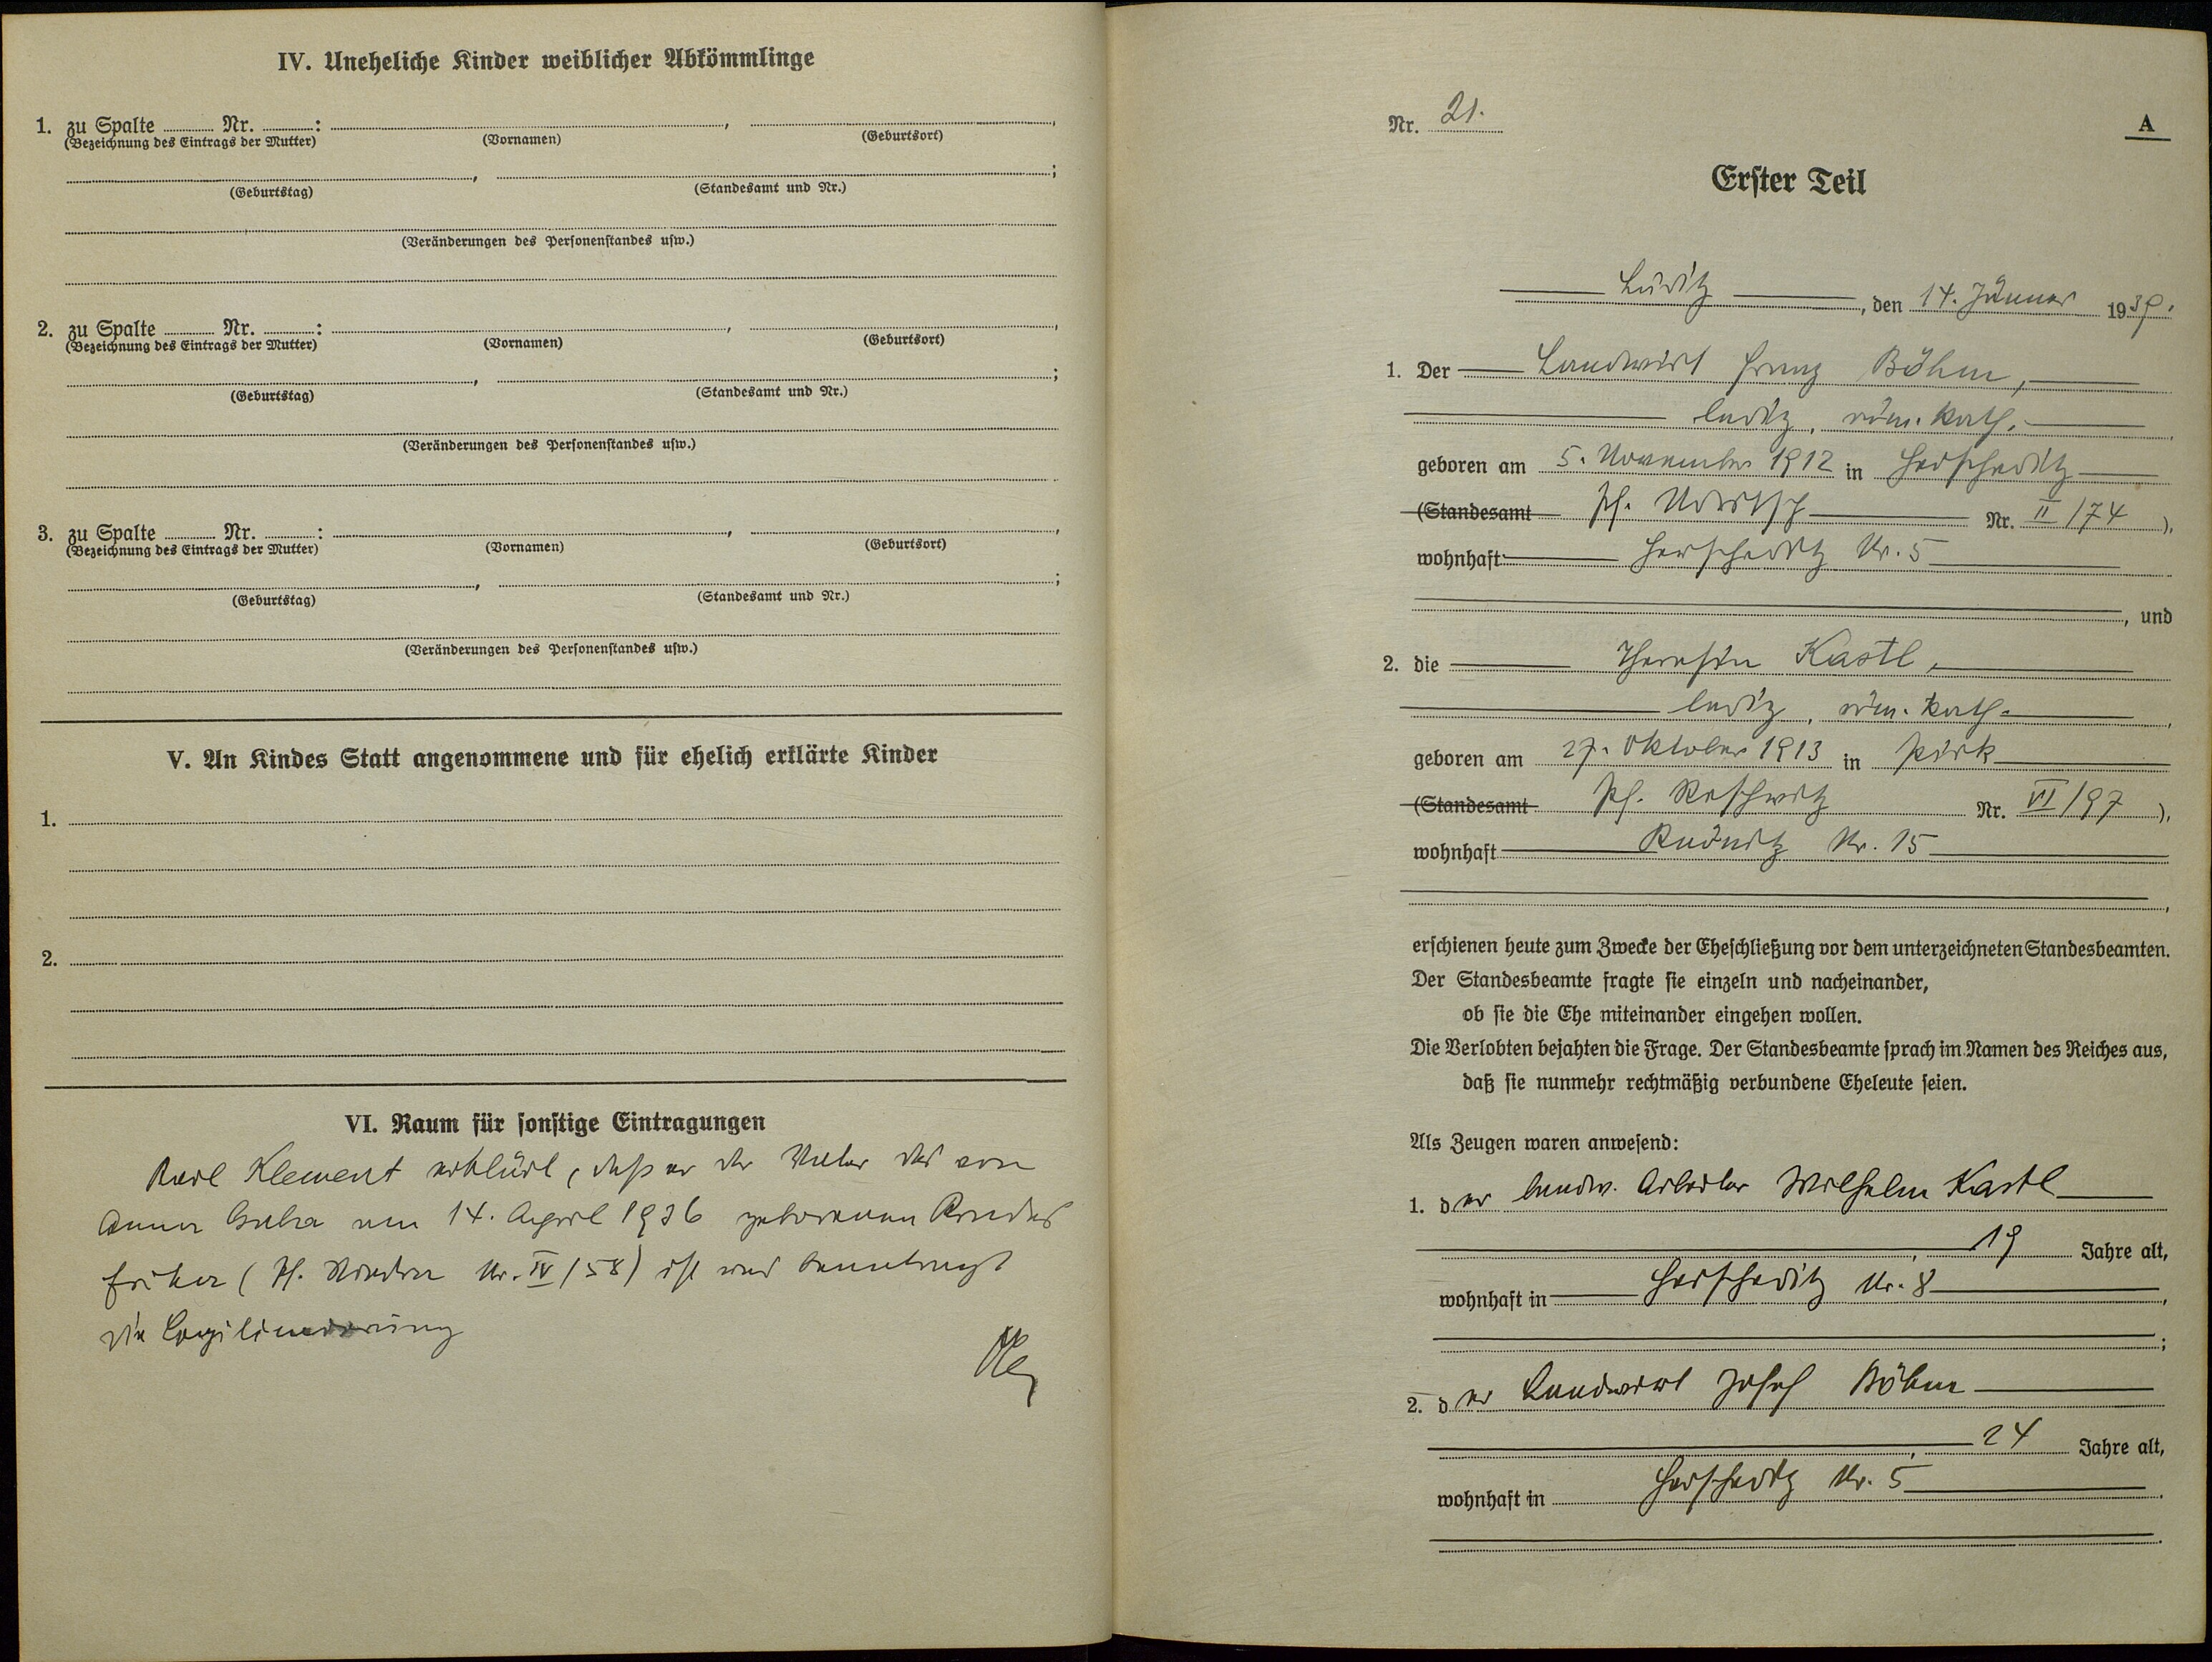 IV. Uneheliche Kinder weiblicher Abkömmlinge
1. zu Spalte Nr. :
(Bezeichnung des Eintrags der Mutter) (Vornamen) (Geburtsort)
(Geburtstag) (Standesamt und Nr.)
(Veränderungen des Personenstandes usw.)
2. zu Spalte Nr. :
(Bezeichnung des Eintrags der Mutter) (Vornamen) (Geburtsort)
(Geburtstag) (Standesamt und Nr.)
(Veränderungen des Personenstandes usw.)
3. zu Spalte Nr. :
(Bezeichnung des Eintrags der Mutter) (Vornamen) (Geburtsort)
(Geburtstag) (Standesamt und Nr.)
(Veränderungen des Personenstandes usw.)
V. An Kindes Statt angenommene und für ehelich erklärte Kinder
1.
2.
VI. Raum für sonstige Eintragungen
Karl Klement erklärt, daß er der Vater des von
Anna am 14. April 1936 geborenen Kindes
(Pf. Nr. IV/58) ist und beantragt
die Legitimierung
Nr. 21.
A
Erster Teil
Luditz, den 14. Jänner 1939.
1. Der Landwirt Franz Böhm,
ledig, röm. kath.
geboren am 5. November 1912 in Herscheditz
(Standesamt Pf. Udritsch Nr. II/74),
wohnhaft Herscheditz Nr. 5
, und
2. die Theresia Kastl,
ledig, röm. kath.
geboren am 27. Oktober 1913 in Pirk
(Standesamt Pf. Reschwitz Nr. VI/97),
wohnhaft Nr. 15
erschienen heute zum Zwecke der Eheschließung vor dem unterzeichneten Standesbeamten.
Der Standesbeamte fragte sie einzeln und nacheinander,
ob sie die Ehe miteinander eingehen wollen.
Die Verlobten bejahten die Frage. Der Standesbeamte sprach im Namen des Reiches aus,
daß sie nunmehr rechtmäßig verbundene Eheleute seien.
Als Zeugen waren anwesend:
1. der landw. Arbeiter Wilhelm Kastl
, 19 Jahre alt,
wohnhaft in Herscheditz Nr. 8
;
2. der Landwirt Josef Böhm
, 24 Jahre alt,
wohnhaft in Herscheditz Nr. 5